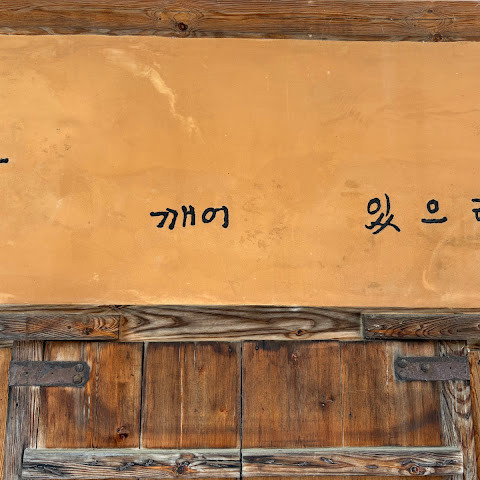 깨어 있으